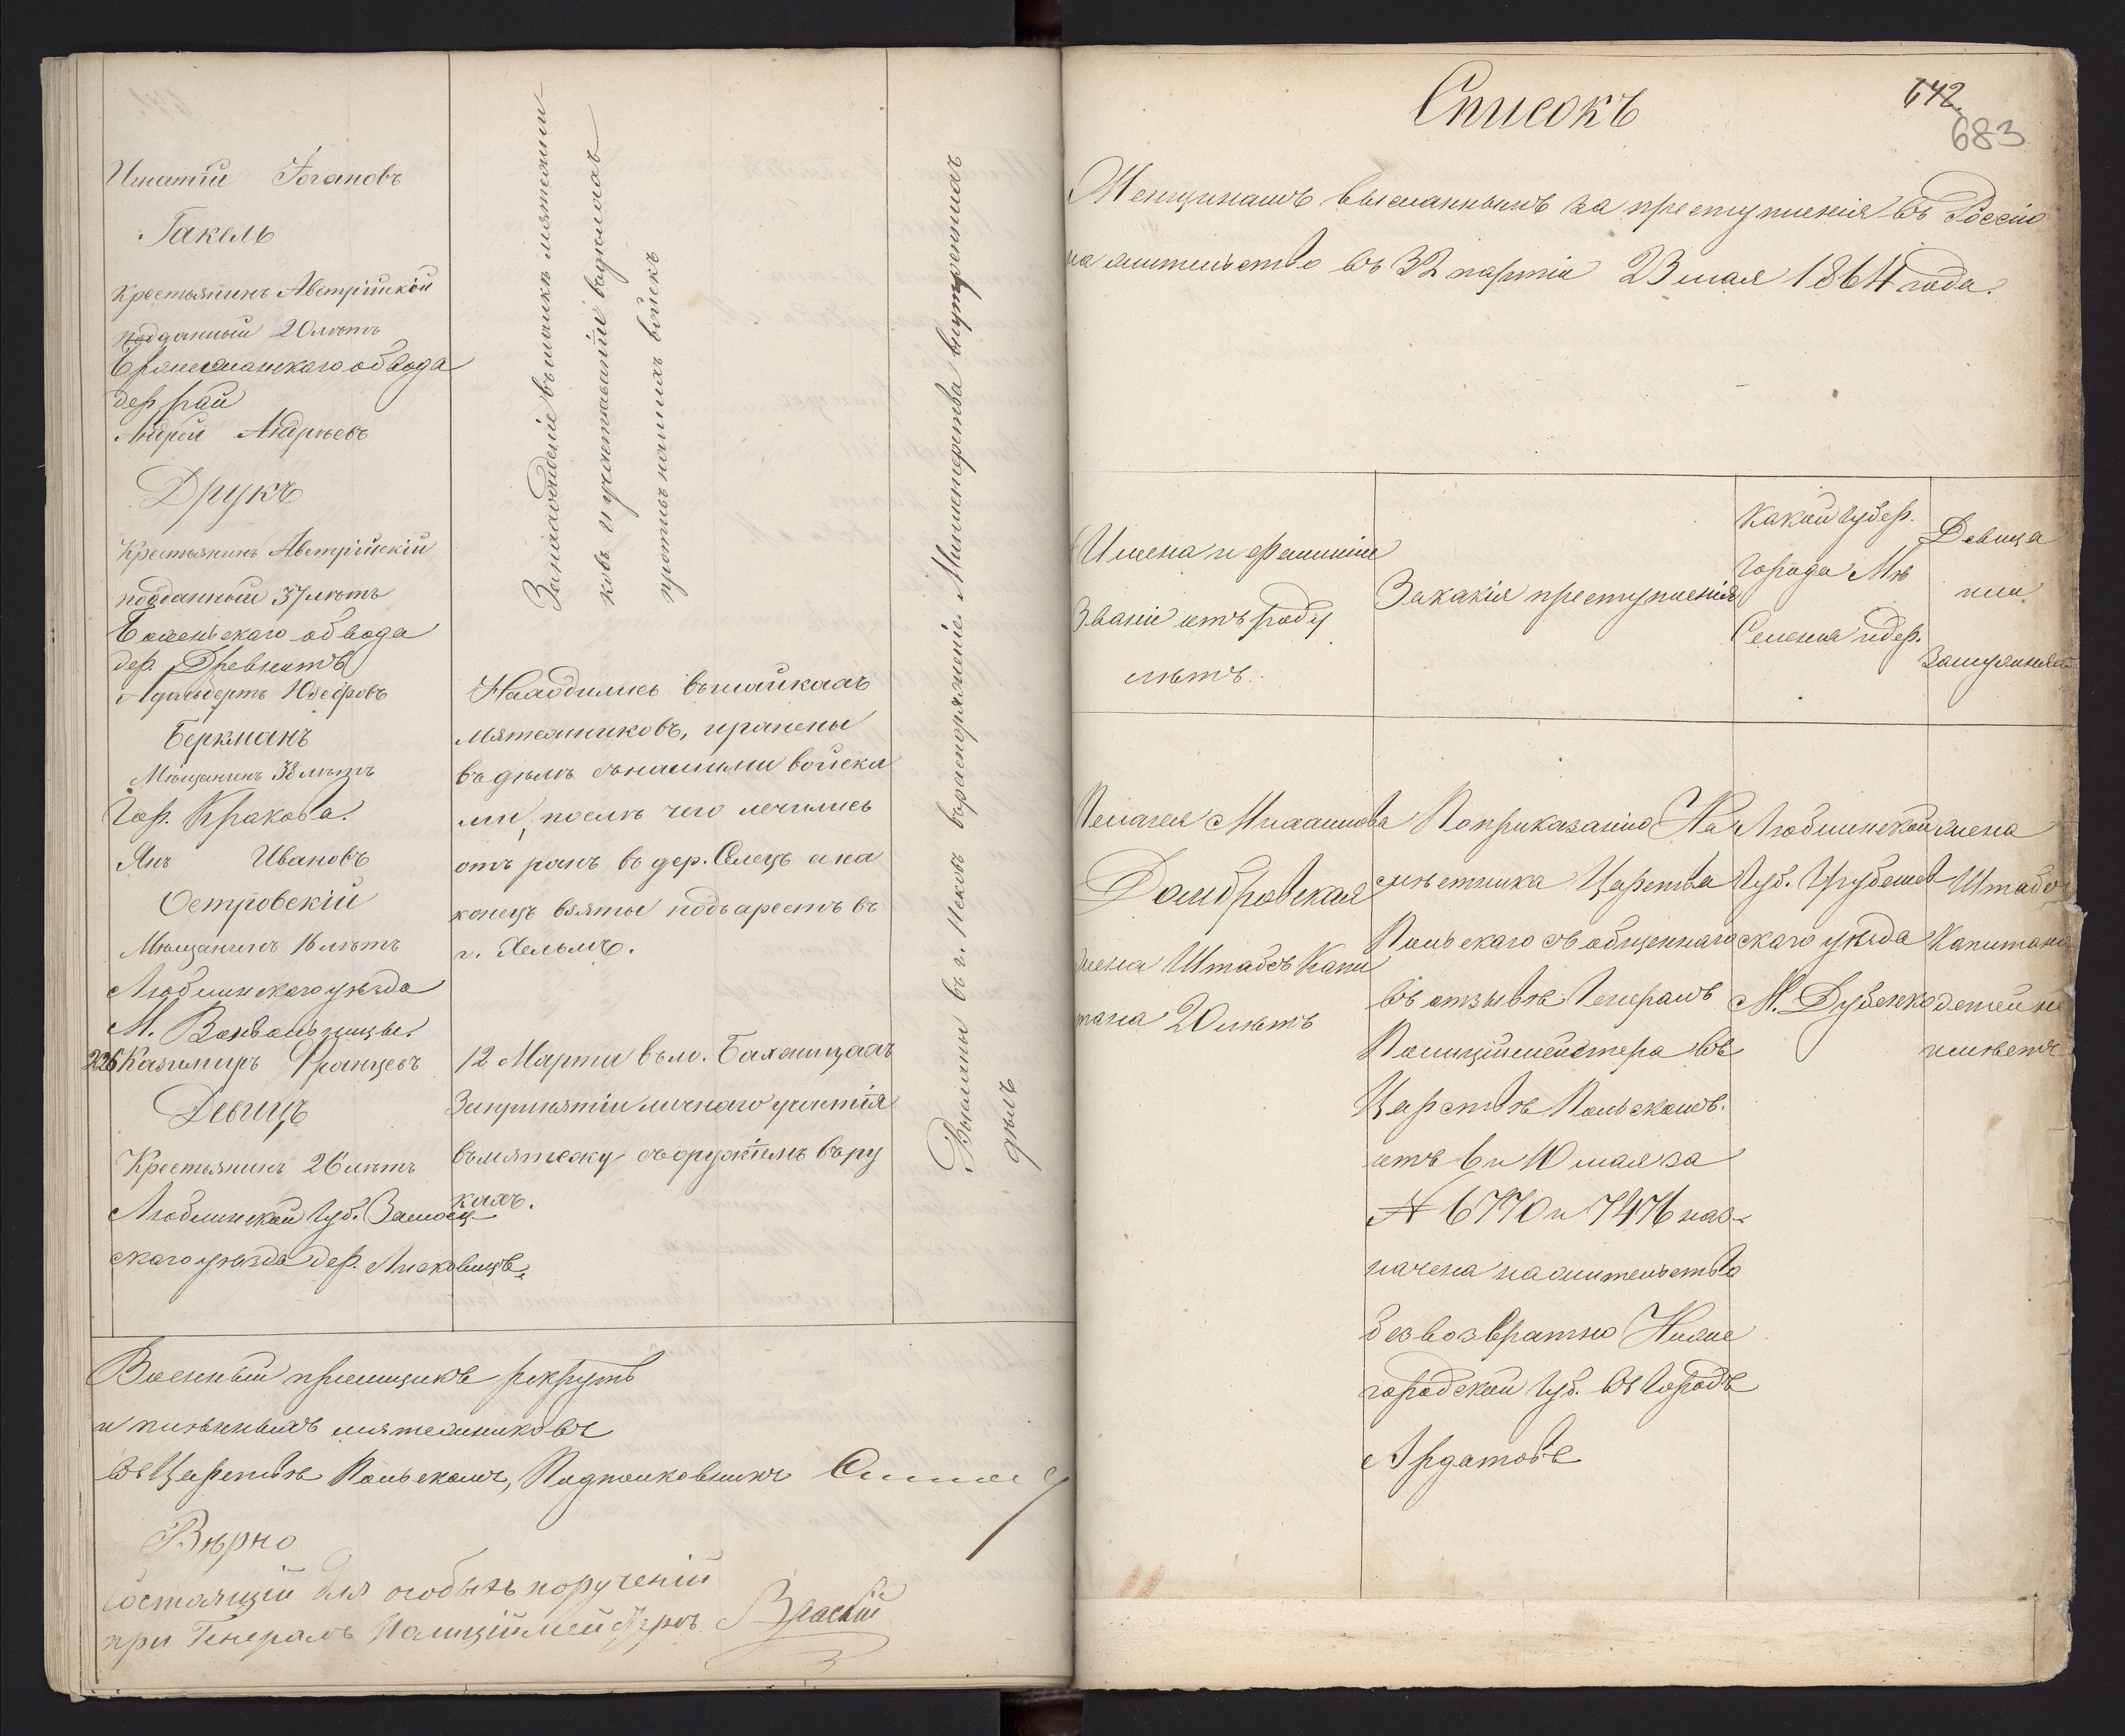 Игнатій Іогановъ
Гакель
Крестьянинъ Австрійскій
подданный 20 лѣтъ
обвода
дер. рай
Андрей Андреевъ
Друкъ
Крестьянинъ Австрійскій
подданный 37 лѣтъ
обвода
дер.
Адальбертъ Юзефовъ
Беркманъ
Мѣщанинъ 38 лѣтъ
Гор. Кракова.
Янъ Ивановъ
Островскій
Мѣщанинъ 16 лѣтъ
Люблинскаго уѣзда
М.
226 Казимиръ Францевъ
Девицъ
Крестьянинъ 26 лѣтъ
Люблинской Губ. Замосц-
скаго уѣзда дер.
За нахожденіе въ шайкахъ мятежни-
ковъ и участвованіи въ дѣлахъ
противъ нашихъ войскъ
Находились въ шайкахъ
мятежниковъ, и ранены
въ дѣлѣ съ нашими войска
ми, послѣ чего лечились
отъ ранъ въ дер. Селецъ а на
конецъ взяты подъ арестъ въ
г. Хельмѣ.
12 Марта въ м.
За принятіи личнаго участія
въ мятежу съ оружіемъ въ ру
кахъ.
Высланы въ г. Псковъ въ распоряженіе Министерства внутреннихъ
дѣлъ
Военный пріемщикъ рекрутъ
и плѣнныхъ мятежниковъ
въ Царствѣ Польскомъ, Подполковникъ
Вѣрно
Состоящій для особыхъ порученій
при Генералъ Полиціймейстерѣ
Списокъ
642
683
Женщинамъ высланнымъ за преступленія въ Россію
на жительство въ 32 партіи 23 мая 1864 года.
Имена и фамиліи
Званіе отъ роду
лѣтъ.
За какія преступленія
Какой Губер.
Города Мѣ
Селенія и дер.
Девица
или
замужняя
Пелагея Михаилова
Домбровская
жена Штабсъ Капи
тана 20 лѣтъ
По приказанію На
мѣстника Царства
Польскаго сообщеннаго
въ отзывѣ Генералъ
Полиціймейстера въ
Царствѣ Польскомъ.
отъ 6 и 10 мая за
№ 6770 и 7476 наз-
начена на жительство
безвозвратно Ниже
городской Губ. въ городѣ
Ардатовѣ
Люблинской
Губ. Грубешов
скаго уѣзда
М. Дубенко
жена
Штабсъ
Капитана
детей не
имѣетъ